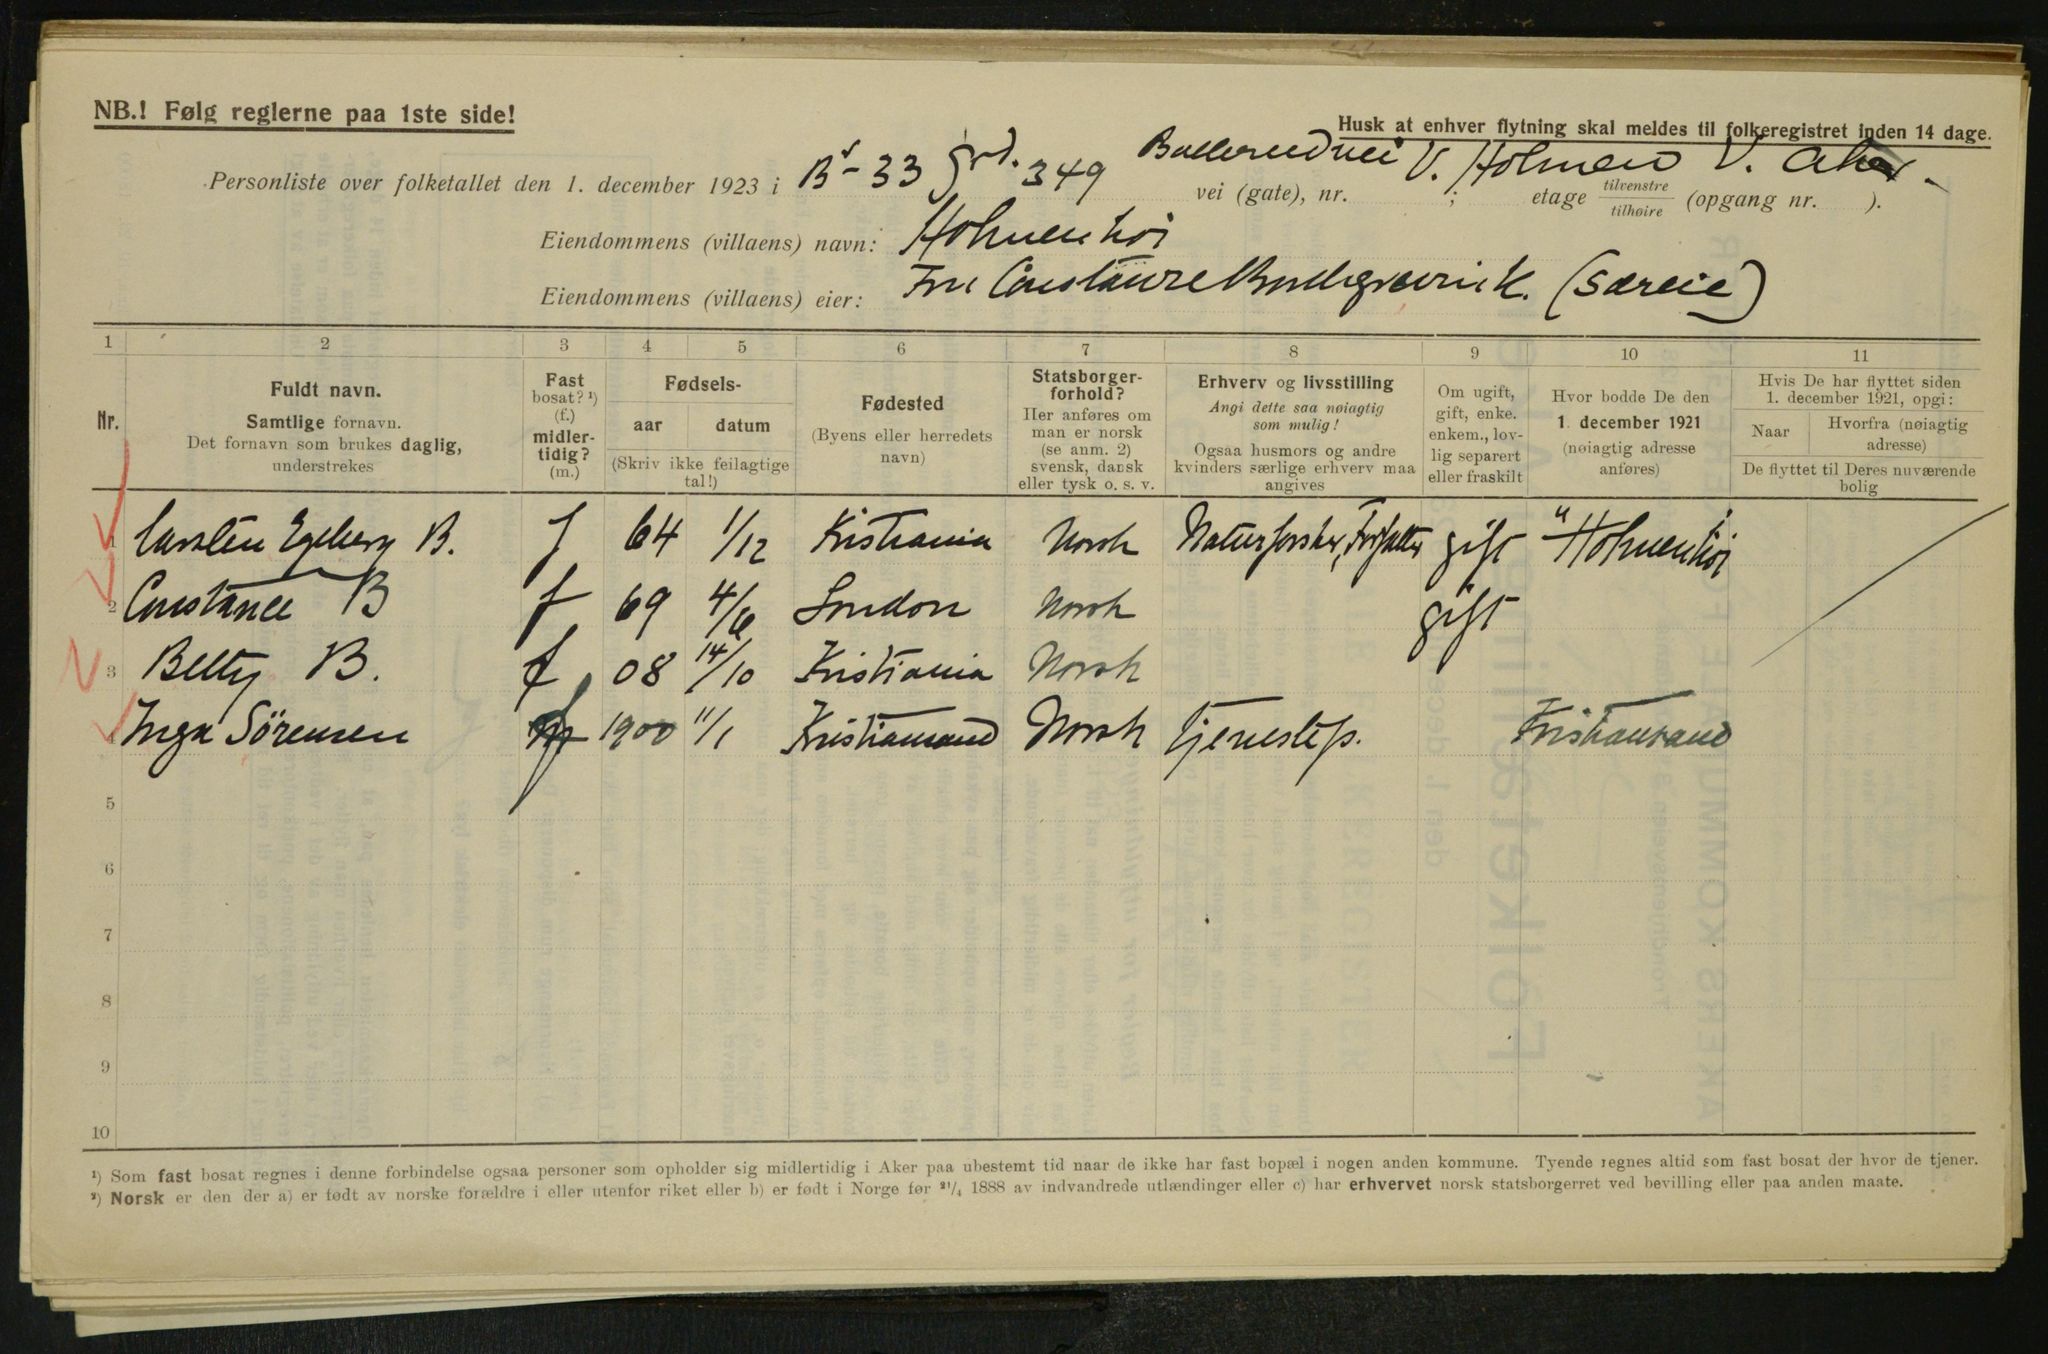 NB.! Følg reglerne paa 1ste side!
Husk at enhver flytning skal meldes til folkeregistret inden 14 dage.
Personliste over folketallet den 1. december 1923 i 33 349 vei (gate), nr. V. Holmen V. Aker. ; etage tilvenstre tilhøire (opgang nr. ).
Eiendommens (villaens) navn: Holmenhøi
Eiendommens (villaens) eier: Fru (Særeie)
1 2 3 4 5 6 7 8 9 10 11
Nr.
Fuldt navn.
Samtlige fornavn.
Det fornavn som brukes daglig,
understrekes
Fast
bosat? ¹)
(f.)
midler-
tidig?
(m.)
Fødsels-
aar datum
(Skriv ikke feilagtige
tal!)
Fødested
(Byens eller herredets
navn)
Statsborger-
forhold?
Her anføres om
man er norsk
(se anm. 2)
svensk, dansk
eller tysk o. s. v.
Erhverv og livsstilling
Angi dette saa nøiagtig
som mulig!
Ogsaa husmors og andre
kvinders særlige erhverv maa
angives
Om ugift,
gift, enke.
enkem., lov-
lig separert
eller fraskilt
Hvor bodde De den
1. december 1921
(nøiagtig adresse
anføres)
Hvis De har flyttet siden
1. december 1921, opgi:
Naar Hvorfra (nøiagtig
adresse)
De flyttet til Deres nuværende
bolig
1 Carsten Egeberg B. f 64 1/12 Kristiania Norsk Naturforsker, Forfatter gift "Holmenhøi
2 Constance B f 69 4/6 London Norsk gift
3 Betty B. f 08 14/10 Kristiania Norsk
4 Inga Sørensen f 1900 11/1 Kristiansand Norsk tjenestep. Kristiansand
5
6
7
8
9
10
¹) Som fast bosat regnes i denne forbindelse ogsaa personer som opholder sig midlertidig i Aker paa ubestemt tid naar de ikke har fast bopæl i nogen anden kommune. Tyende regnes altid som fast bosat der hvor de tjener.
²) Norsk er den der a) er født av norske forældre i eller utenfor riket eller b) er født i Norge før 21/4 1888 av indvandrede utlændinger eller c) har erhvervet norsk statsborgerret ved bevilling eller paa anden maate.